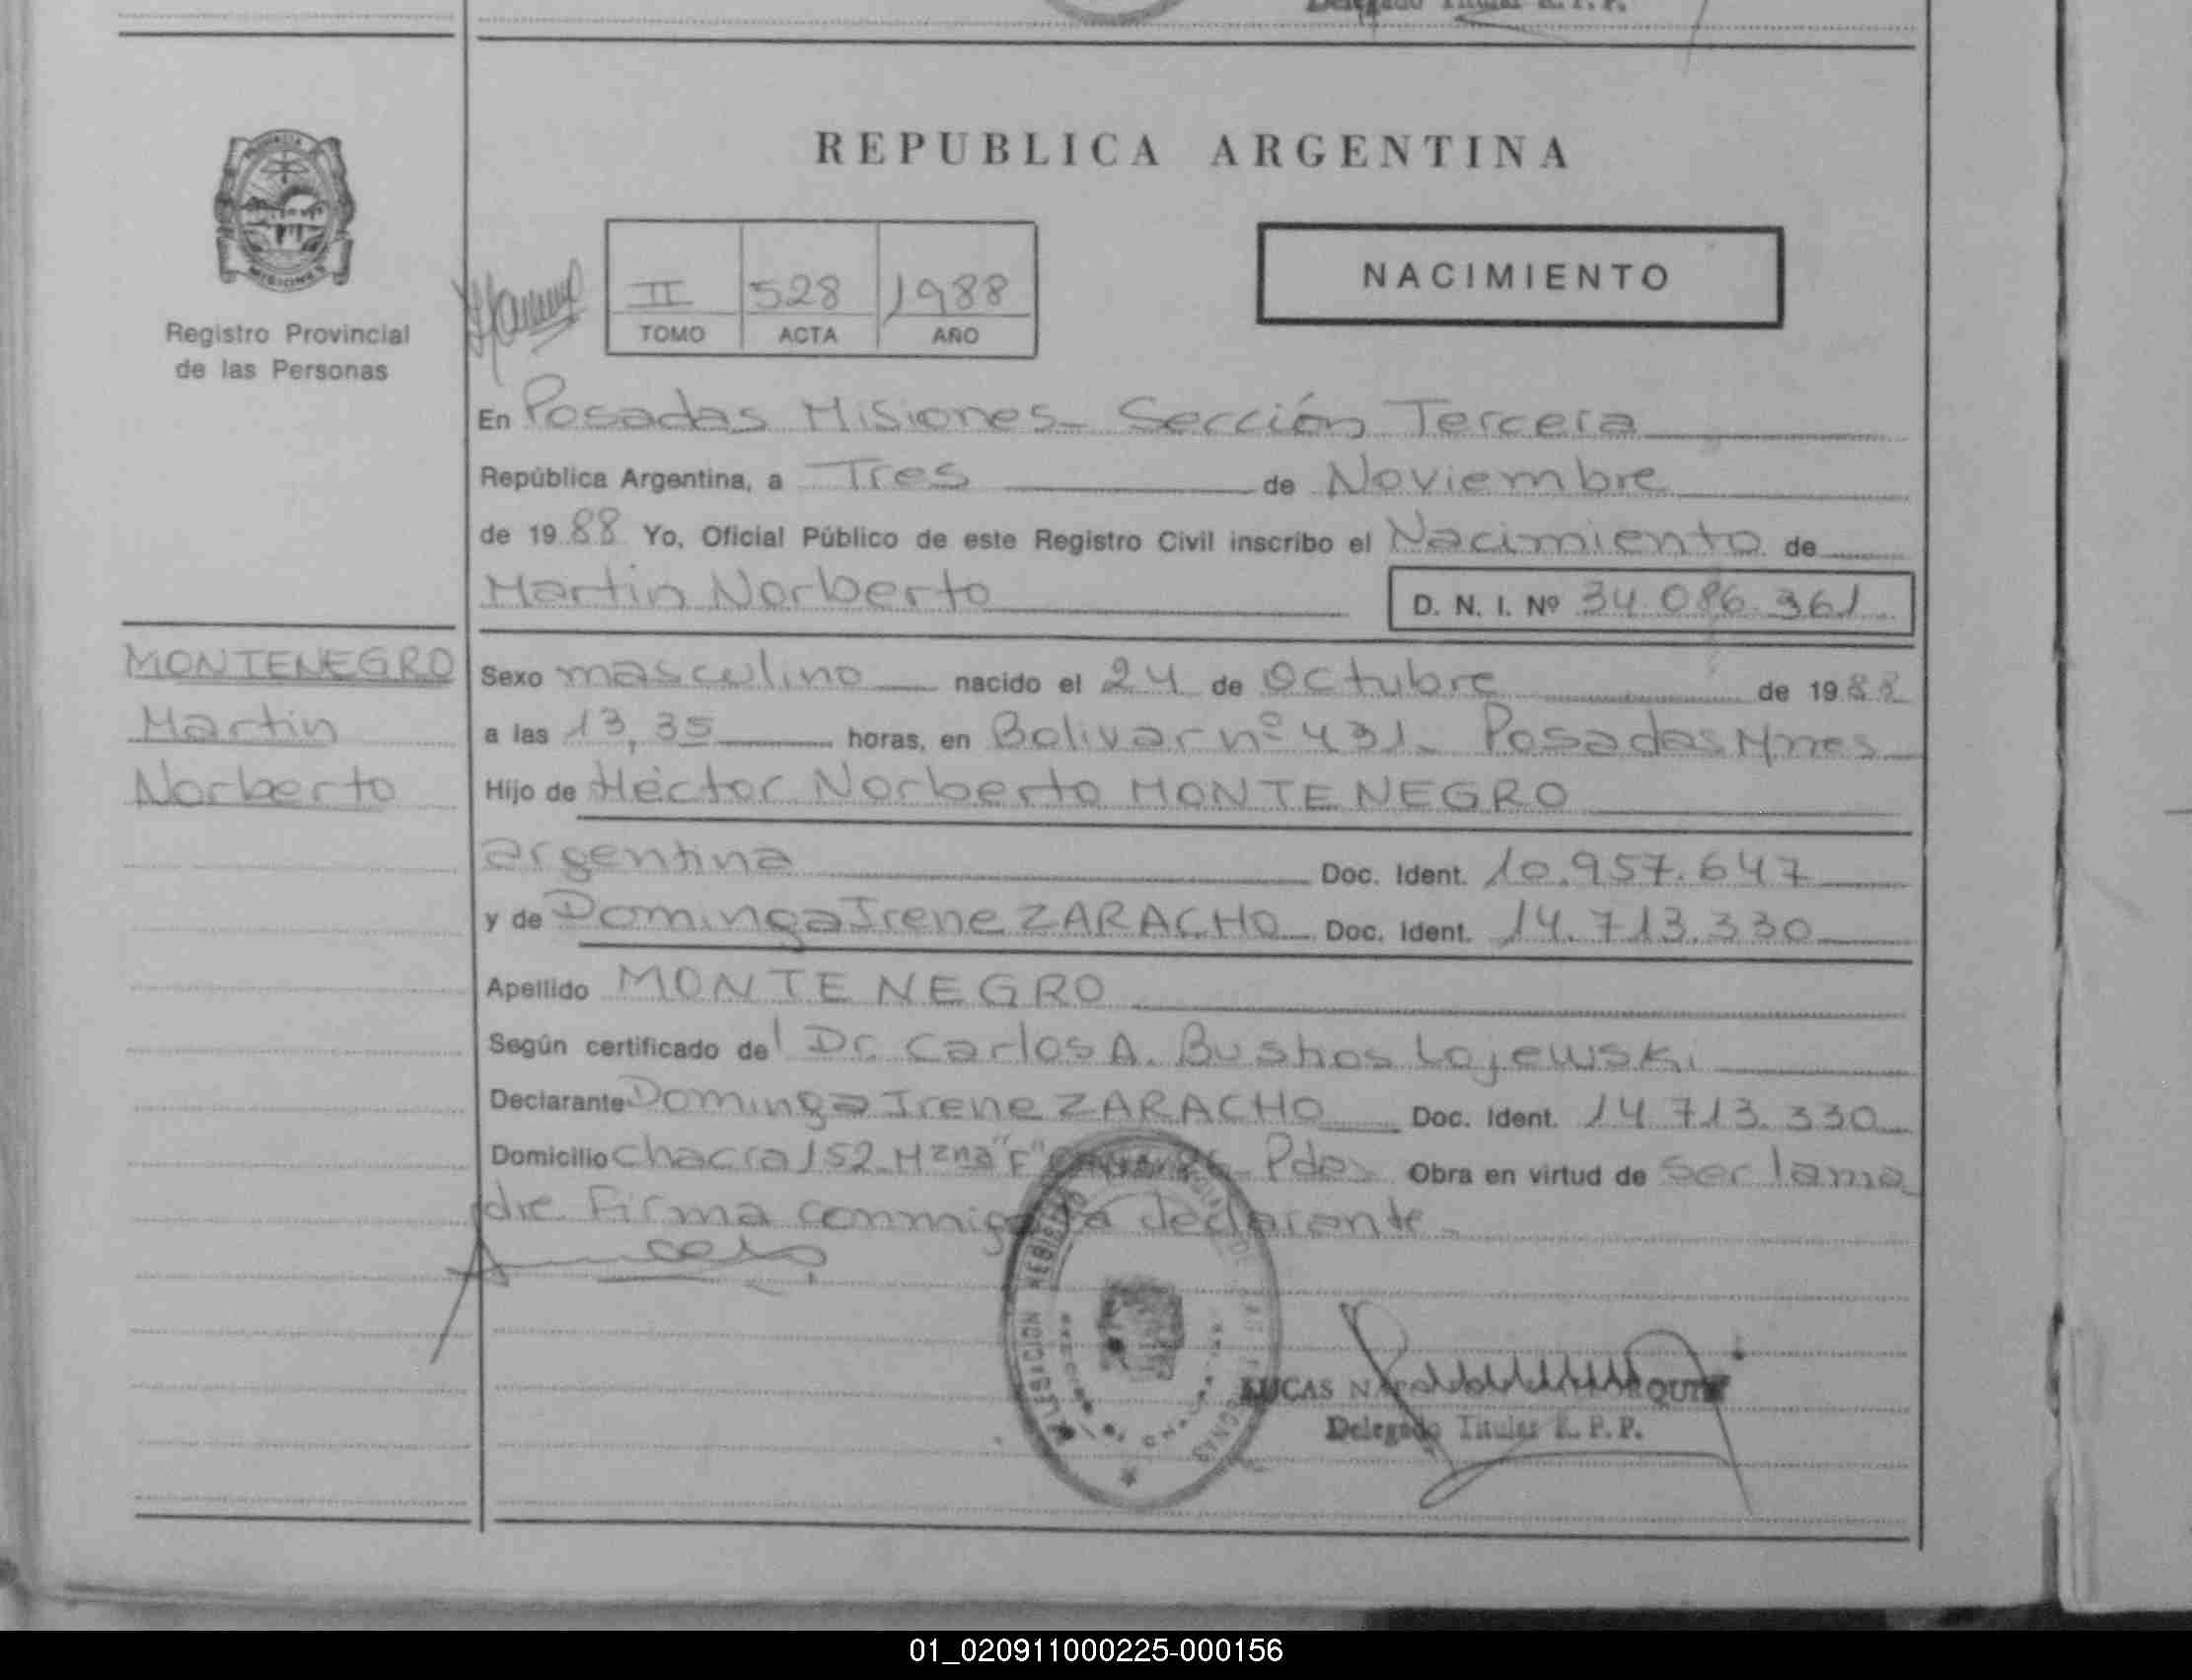 Delegado Titular R. P. P.
REPUBLICA ARGENTINA
PROVINCIA
MISIONES
Registro Provincial
de las Personas
II 528 1988
TOMO ACTA AÑO
NACIMIENTO
En Posadas Misiones- Sección Tercera
República Argentina, a Tres de Noviembre
de 19 88 Yo, Oficial Público de este Registro Civil inscribo el Nacimiento de
Martin Norberto D. N. I. Nº 34.086.361
MONTENEGRO
Martin
Norberto
Sexo masculino nacido el 24 de Octubre de 19 88
a las 13,35 horas, en Bolivar nº 431- Posadas Mnes
Hijo de Héctor Norberto MONTENEGRO
argentina Doc. Ident. 10.957.647
y de Dominga Irene ZARACHO Doc. Ident. 14.713.330
Apellido MONTENEGRO
Según certificado del Dr. Carlos A. Bustos Lojewski
Declarante Dominga Irene ZARACHO Doc. Ident. 14.713.330
Domicilio Chacra 152 Mzna "F" Pdas Obra en virtud de ser la ma
dre Firma conmigo la declarante-
DELEGACION REGISTRO
LUCAS
Delegado Titular R. P. P.
01_020911000225-000156